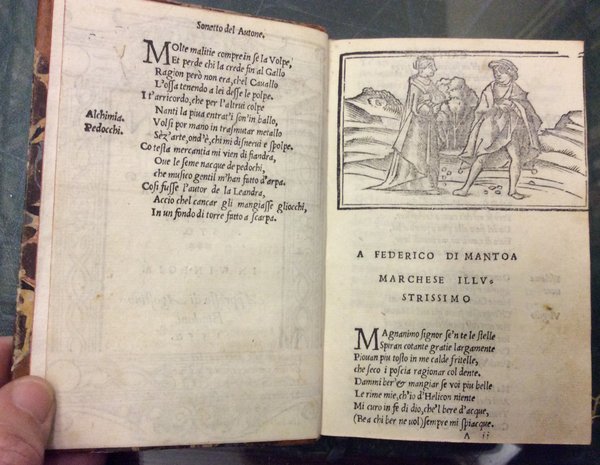 Sonetto del Autone.
MOlte malitie compren in se la Volpe,
Et perde chi la crede fin al Gallo
Ragion però non era, chel Cauallo
L'ossa tenendo a lei desse le polpe.
I t'arricordo, che per l'altrui colpe
Alchimia.
Nanti la piua entrat'i son'in ballo,
Pedocchi.
Volsi por mano in trasmutar metallo
Sèz'arte, ond'è, chi mi disnerui e spolpe.
Co testa mercantia mi vien di fiandra,
Oue le seme nacque de pedochi,
che musico gentil m'han futto d'arpa.
Cosi fusse l'autor de la Leandra,
Accio chel cancar gli mangiasse gliocchi,
In un fondo di torre futto a scarpa.
A FEDERICO DI MANTOA
MARCHESE ILLV-
STRISSIMO
MAgnanimo signor se'n te le stelle
Spiran cotante gratie largamente
Piouan piu tosto in me calde fritelle,
che seco i poscia ragionar col dente.
Dammi ber'& mangiar se voi piu belle
Le rime mie, ch'io d'Helicon niente
Mi curo in fe di dio, che'l bere d'acque,
(Bea chi ber ne uol) sempre mi spiacque.
A ii